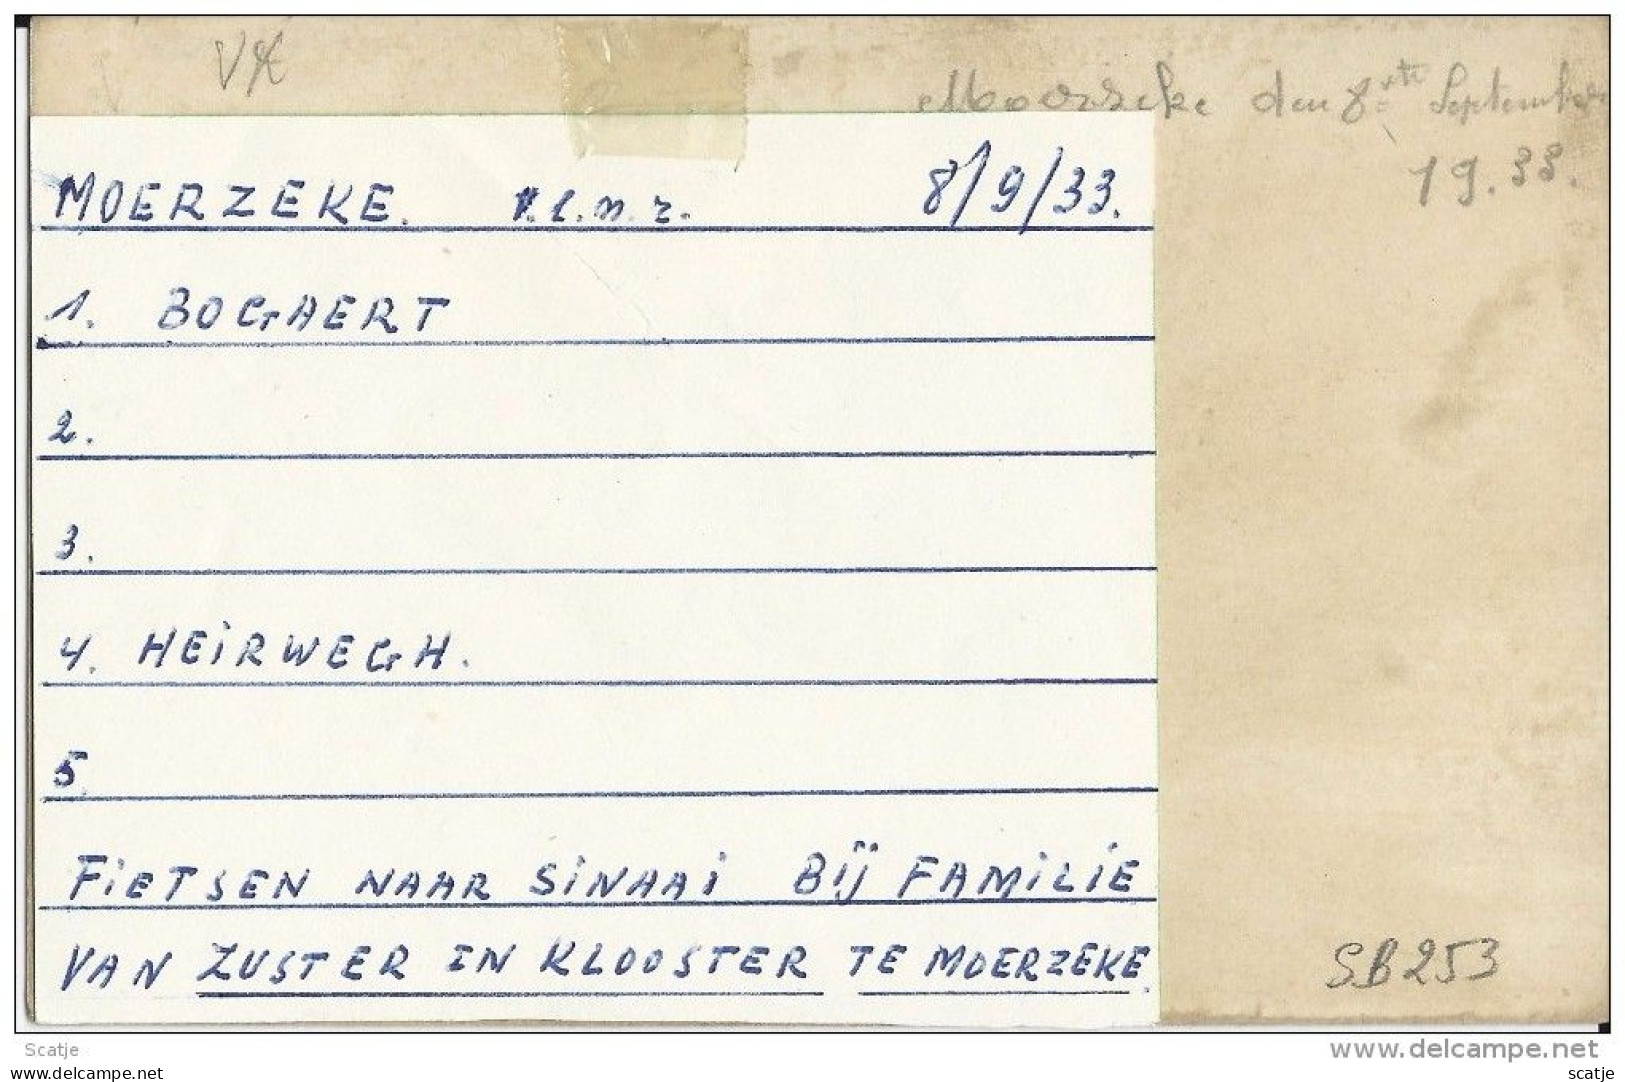 VK
Moerzeke den 8sten September
1933.
MOERZEKE. v.l.n.r. 8/9/33.
1. BOGAERT
2.
3.
4. HEIRWEGH.
5.
FIETSEN NAAR SINAAI BIJ FAMILIE
VAN ZUSTER IN KLOOSTER TE MOERZEKE.
SB253
Scatje www.delcampe.net
scatje.com scatje